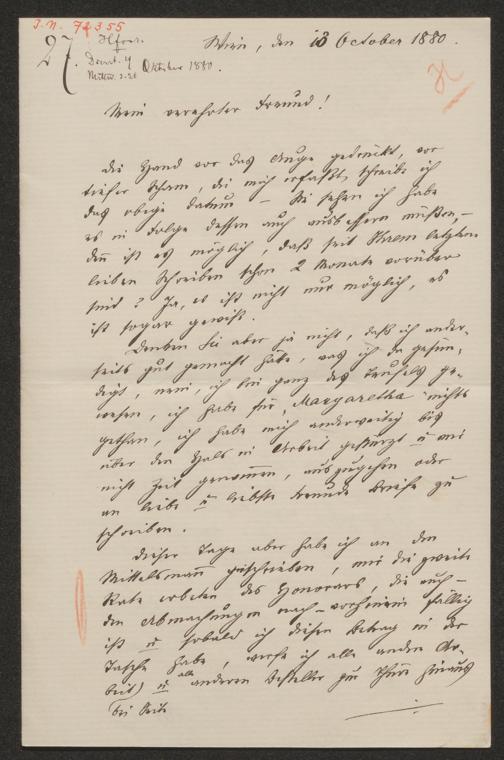 I.N. 74355
27.
Oktober 1880.
Wien, den 13 October 1880.
Mein verehrter Freund!
Die Hand vor das Auge gedrückt, vor
tiefer Scham, die mich erfaßt, schreibe ich
das obige Datum – Sie sehen ich habe
es in Folge dessen auch ausbessern müssen, –
denn ist es möglich, daß seit Ihrem letzten
lieben Schreiben schon 2 Monate vorüber
sind? Ja, es ist nicht nur möglich, es
ist sogar gewiß.
Denken Sie aber ja nicht, daß ich ander-
seits gut gemacht habe, was ich da gesün-
digt, nein, ich bin ganz des Teufels ge-
wesen, ich habe für „Margaretha" nichts
gethan, ich habe mich anderweitig bis
über den Hals in Arbeit gestürzt u mir
nicht Zeit genommen, auszugehen oder
an liebe u liebste Freunde Briefe zu
schreiben.
Dieser Tage aber habe ich an den
Mittelsmann geschrieben, mir die zweite
Rate erbeten des Honorars, die auch –
den Abmachungen nach – vorhinein fällig
ist u sobald ich diesen Betrag in der
Tasche habe, werfe ich alle andere Ar-
beit) u alle anderen Besteller zur Thüre hinaus
(bei Seite